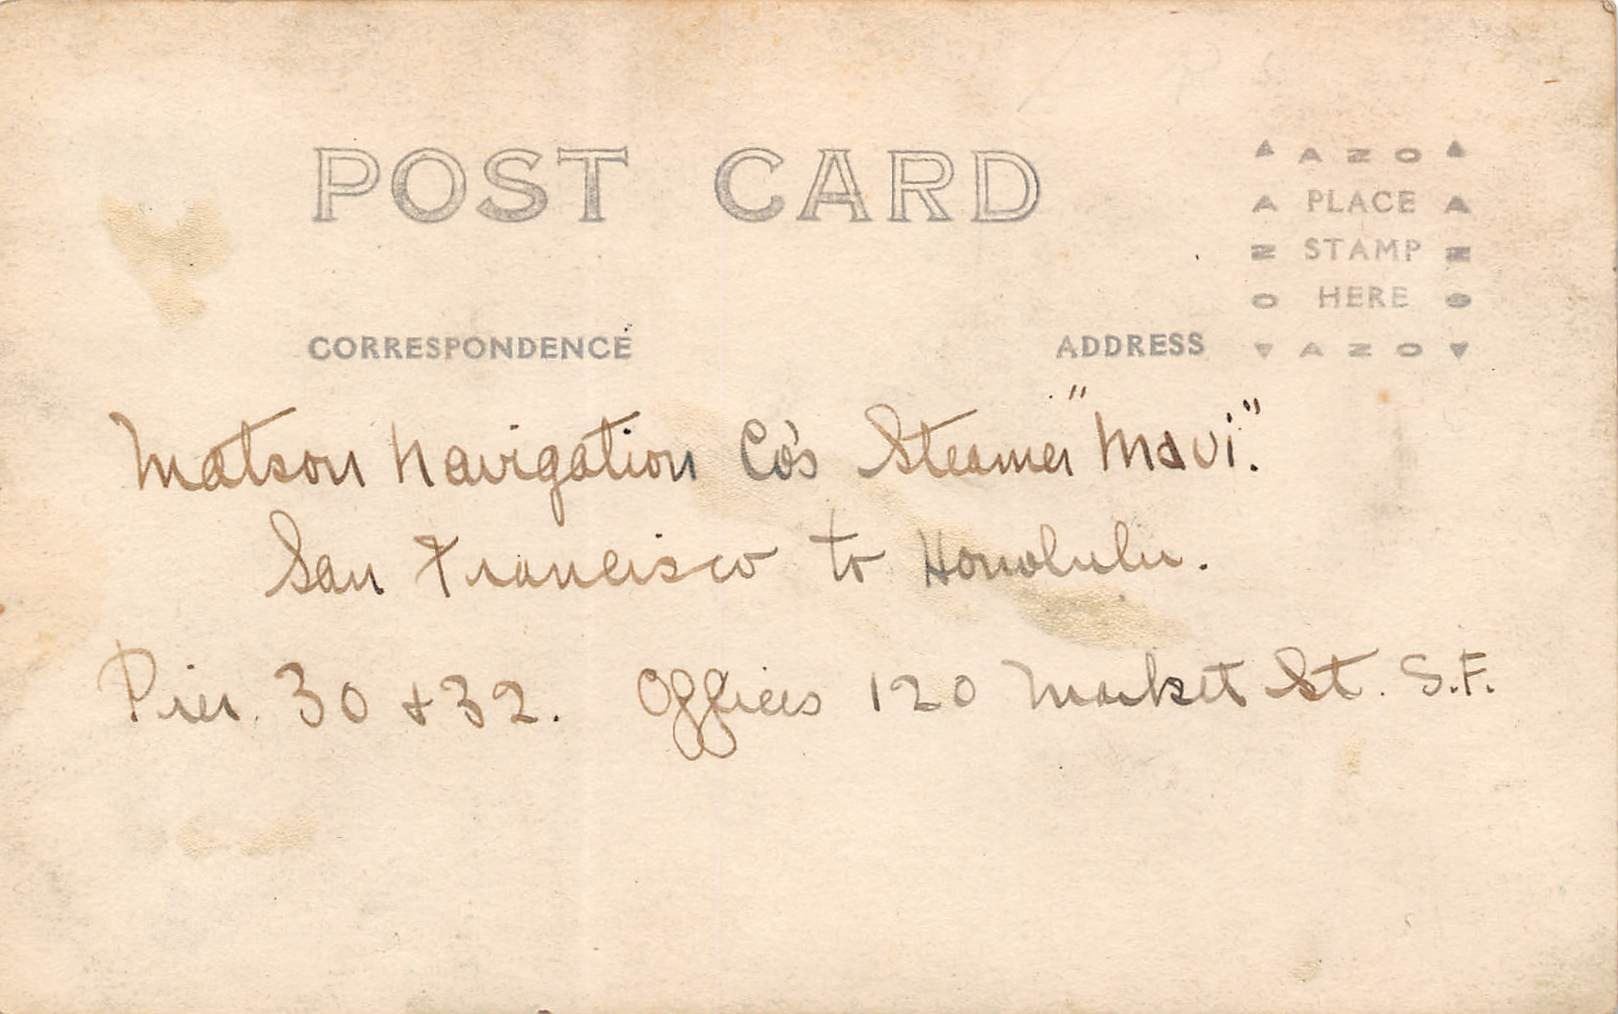 POST CARD
AZO
A PLACE A
N STAMP N
O HERE O
AZO
CORRESPONDENCE
ADDRESS
Matson Navigation Co's Steamer "Maui".
San Francisco to Honolulu.
Pier. 30 + 32. Offices 120 Market St. S.F.